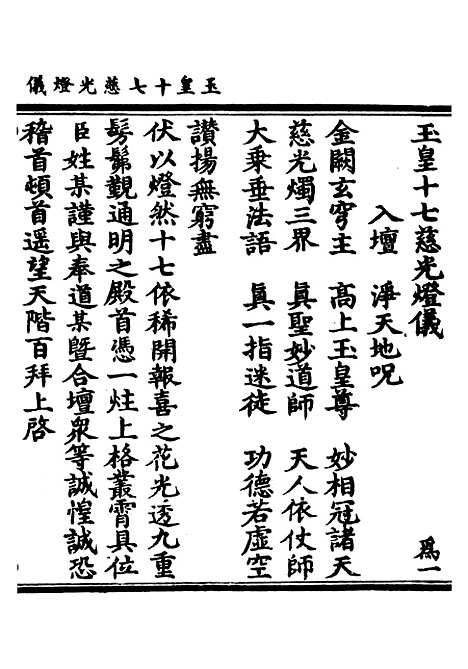 玉皇十七慈光燈儀
玉皇十七慈光燈儀 爲一
入壇 淨天地呪
金闕玄穹主 高上玉皇尊 妙相冠諸天
慈光燭三界 眞聖妙道師 天人依仗師
大乘垂法語 眞一指迷徒 功德若虛空
讚揚無窮盡
伏以燈然十七依稀開報喜之花光透九重
髣髴觀通明之殿首憑一炷上格叢霄具位
臣姓某謹與奉道某曁合壇衆等誠惶誠恐
稽首頓首遥望天階百拜上啓